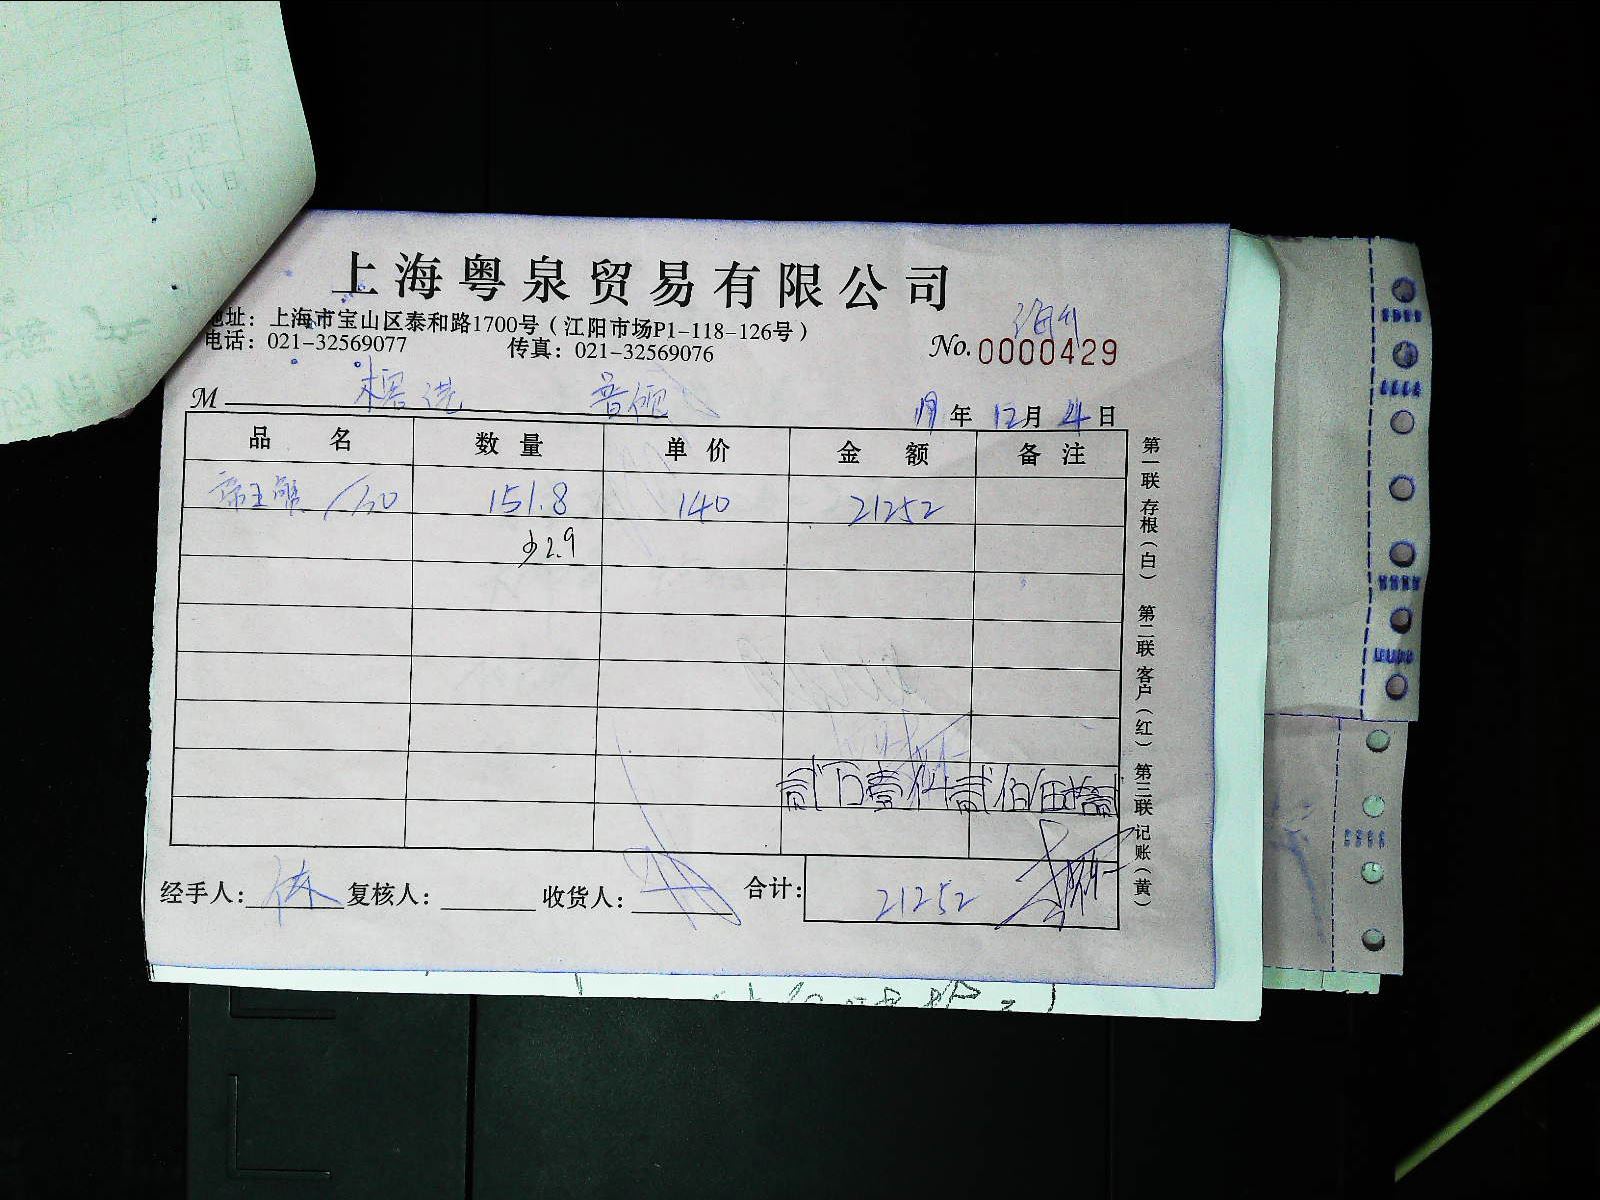 上海粤泉贸易有限公司
地址：上海市宝山区泰和路1700号（江阳市场P1-118-126号）
电话：021-32569077 传真：021-32569076
No. 0000429
M
19年 12月 4日
品 名 数 量 单 价 金 额 备 注
帝王蟹 151.8 140 21252
少2.9
贰万壹仟贰佰伍拾贰
经手人： 复核人： 收货人： 合计： 21252
第一联 存根（白） 第二联 客户（红） 第三联 记账（黄）